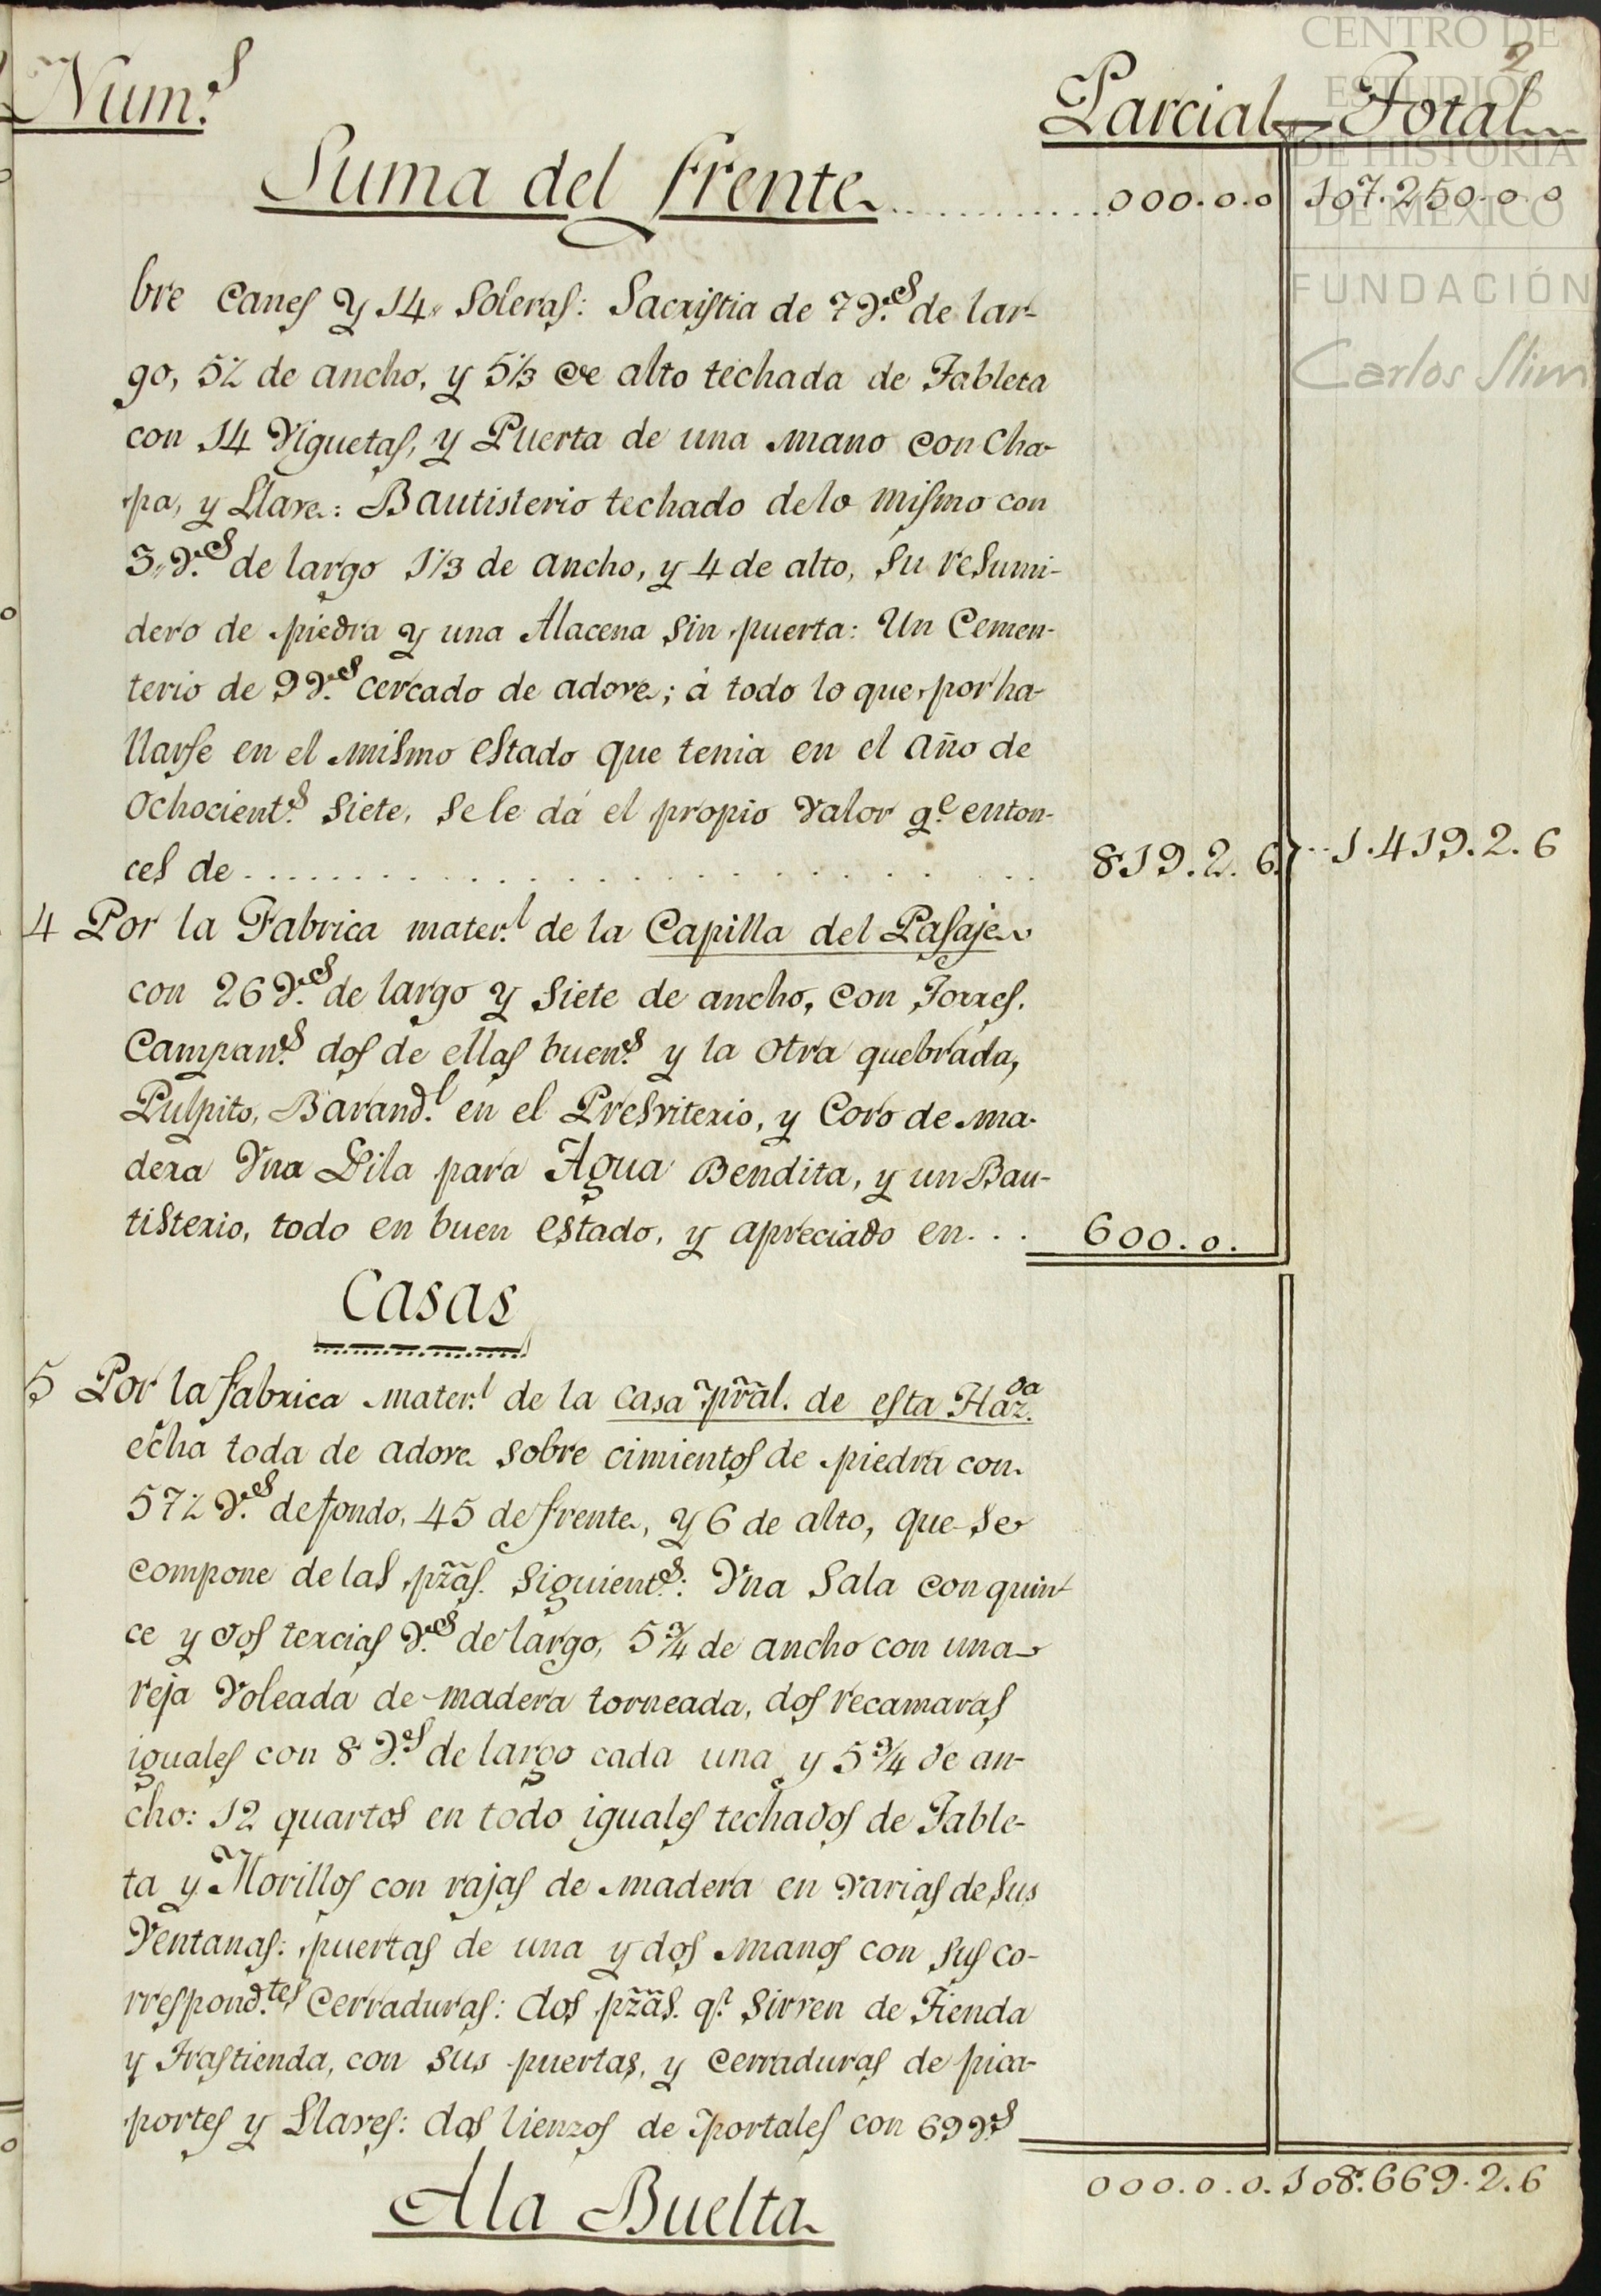 2
Num.s Parcial Total
Suma del frente 000.0.0 107.250.0.0
bre Canes y 14 Soleras: Sacristia de 7 v.s de lar-
go, 5½ de ancho, y 5⅓ de alto techada de Tableta
con 14 Viguetas, y Puerta de una mano con Cha-
pa, y Llave: Bautisterio techado de lo mismo con
3 v.s de largo 1⅓ de ancho, y 4 de alto, su resumi-
dero de piedra y una Alacena sin puerta: Un Cemen-
terio de 99 v.s cercado de adove; á todo lo que por ha-
llarse en el mismo estado que tenia en el año de
Ochocient.s siete, se le dá el propio valor q.e enton-
ces de 819.2.6. 1.419.2.6
4 Por la Fabrica mater.l de la Capilla del Pasaje
con 26 v.s de largo y siete de ancho, con Torres.
Campan.s dos de ellas buen.s y la otra quebrada,
Pulpito, Barand.l en el Presviterio, y Coro de ma-
dera Vna Pila para Agua Bendita, y un Bau-
tisterio, todo en buen estado, y apreciado en... 600.0.
Casas
5 Por la fabrica mater.l de la casa prãl. de esta Haz.da
echa toda de adove sobre cimientos de piedra con
57½ v.s de fondo, 45 de frente, y 6 de alto, que se
compone de las pzãs. siguient.s: Vna Sala con quin-
ce y dos tercias v.s de largo, 5¾ de ancho con una
reja voleada de madera torneada, dos recamaras
iguales con 8 v.s de largo cada una y 5¾ de an-
cho: 12 quartos en todo iguales techados de Table-
ta y Morillos con rajas de madera en varias de sus
Ventanas: puertas de una y dos manos con sus co-
rrespond.tes Cerraduras: dos pzãs. q.e sirven de Tienda
y Trastienda, con sus puertas, y cerraduras de pica-
portes y Llaves: dos lienzos de Portales con 69 v.s
A la Buelta 000.0.0. 108.669.2.6
CENTRO DE
ESTUDIOS
DE HISTORIA
DE MÉXICO
FUNDACIÓN
Carlos Slim